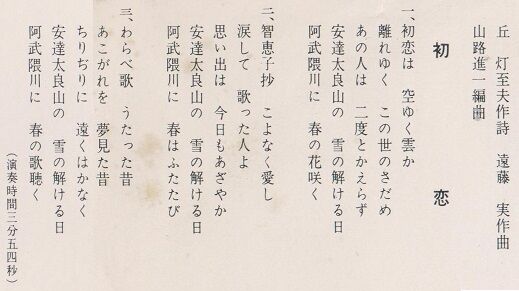 丘 灯至夫作詩 遠藤 実作曲
山路進一編曲
初恋
一、初恋は 空ゆく雲か
離れゆく この世のさだめ
あの人は 二度とかえらず
安達太良山の 雪の解ける日
阿武隈川に 春の花咲く
二、智恵子抄 こよなく愛し
涙して 歌った人よ
思い出は 今日もあざやか
安達太良山の 雪の解ける日
阿武隈川に 春はふたたび
三、わらべ歌 うたった昔
あこがれを 夢見た昔
ちりぢりに 遠くはかなく
安達太良山の 雪の解ける日
阿武隈川に 春の歌聴く
（演奏時間三分五四秒）